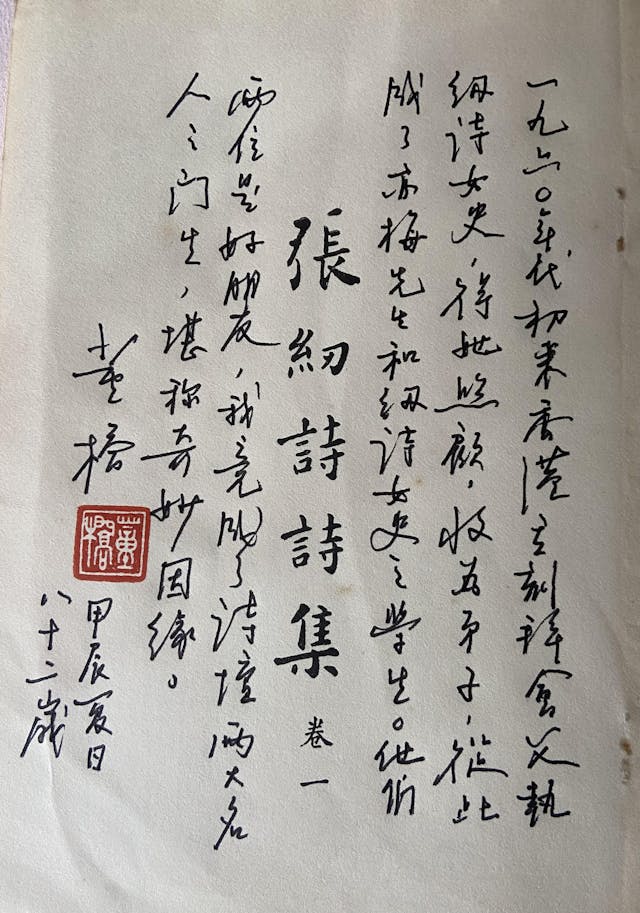 一九六〇年代初來香港立刻拜會父執
紉詩女史，得她照顧，收為弟子，從此
成了亦梅先生和紉詩女史之學生。他們
張紉詩詩集 卷一
兩位是好朋友，我竟成了詩壇兩大名
人之門生，堪称奇妙因緣。
董橋
董橋
甲辰夏日
八十二歲